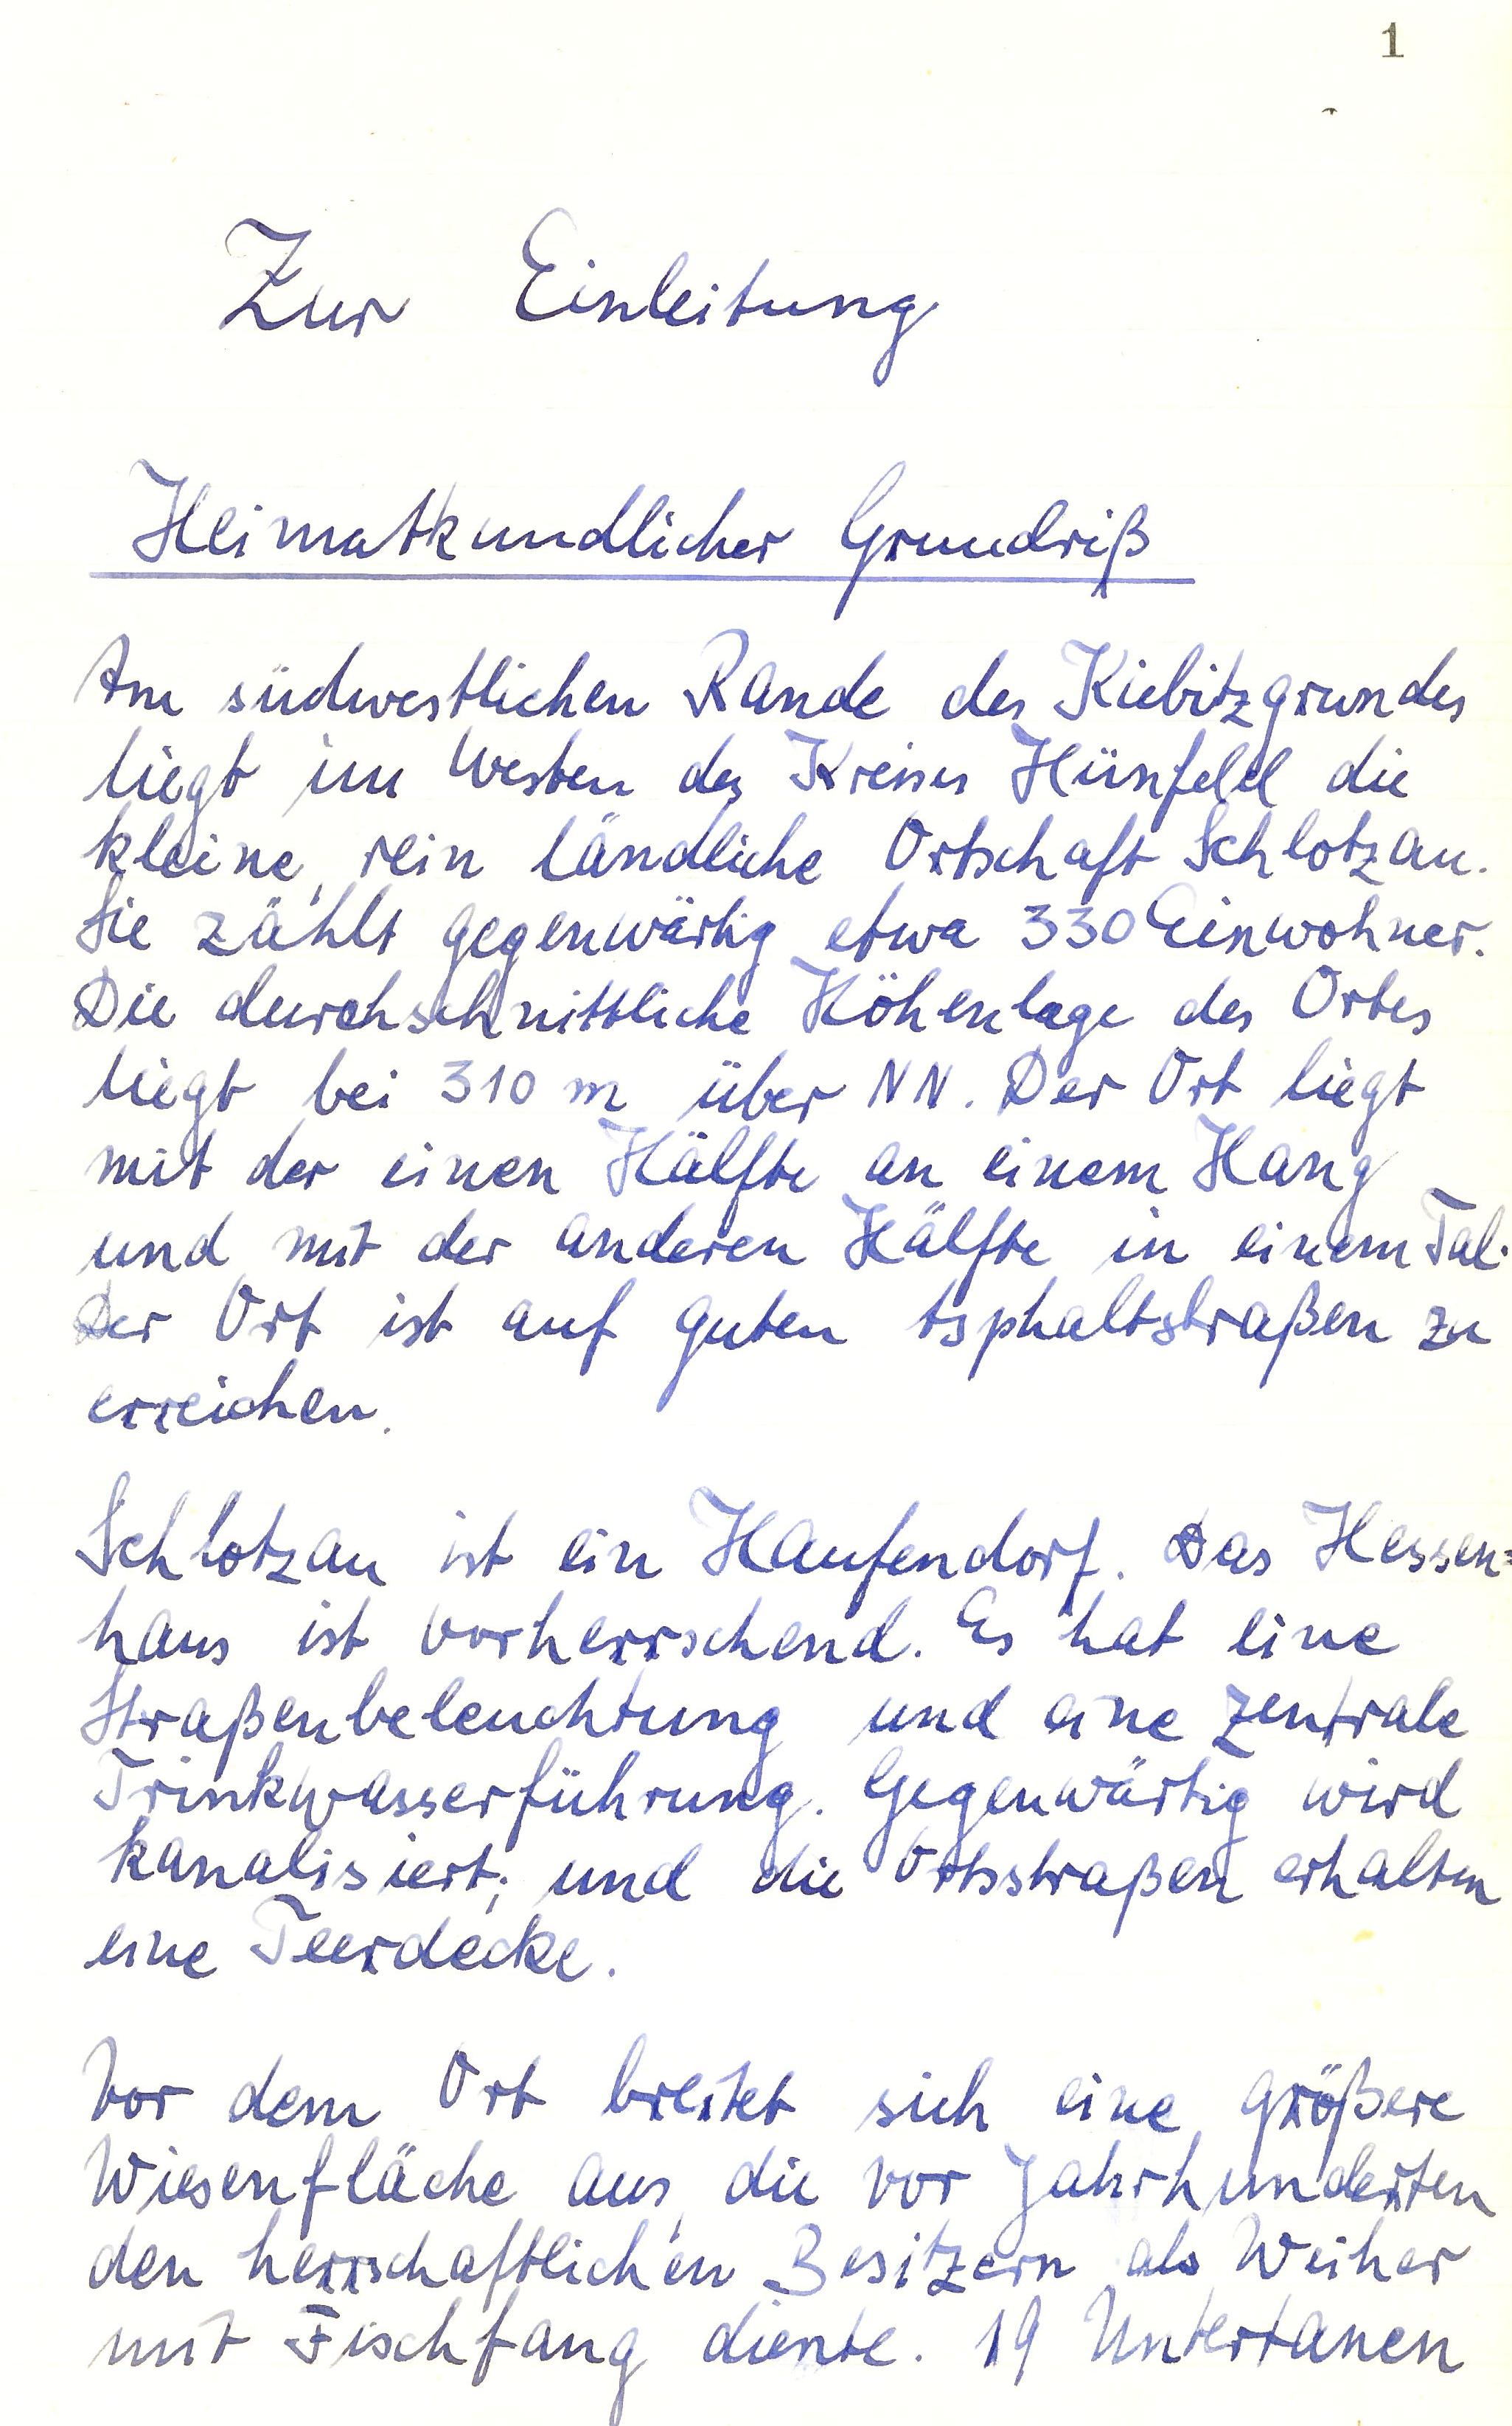 1
Zur Einleitung
Heimatkundlicher Grundriß
Am südwestlichen Rande des Kiebitzgrundes
liegt im Westen des Kreises Hünfeld die
kleine, rein ländliche Ortschaft Schlotzau.
Sie zählt gegenwärtig etwa 330 Einwohner.
Die durchschnittliche Höhenlage des Ortes
liegt bei 310 m über NN. Der Ort liegt
mit der einen Hälfte an einem Hang
und mit der anderen Hälfte in einem Tal.
Der Ort ist auf guten Asphaltstraßen zu
erreichen.
Schlotzau ist ein Haufendorf. Das Hessen=
haus ist vorherrschend. Es hat eine
Straßenbeleuchtung und eine zentrale
Trinkwasserführung. Gegenwärtig wird
kanalisiert; und die Ortsstraßen erhalten
eine Teerdecke.
Vor dem Ort breitet sich eine größere
Wiesenfläche aus, die vor Jahrhunderten
den herrschaftlichen Besitzern als Weiher
mit Fischfang diente. 19 Untertanen